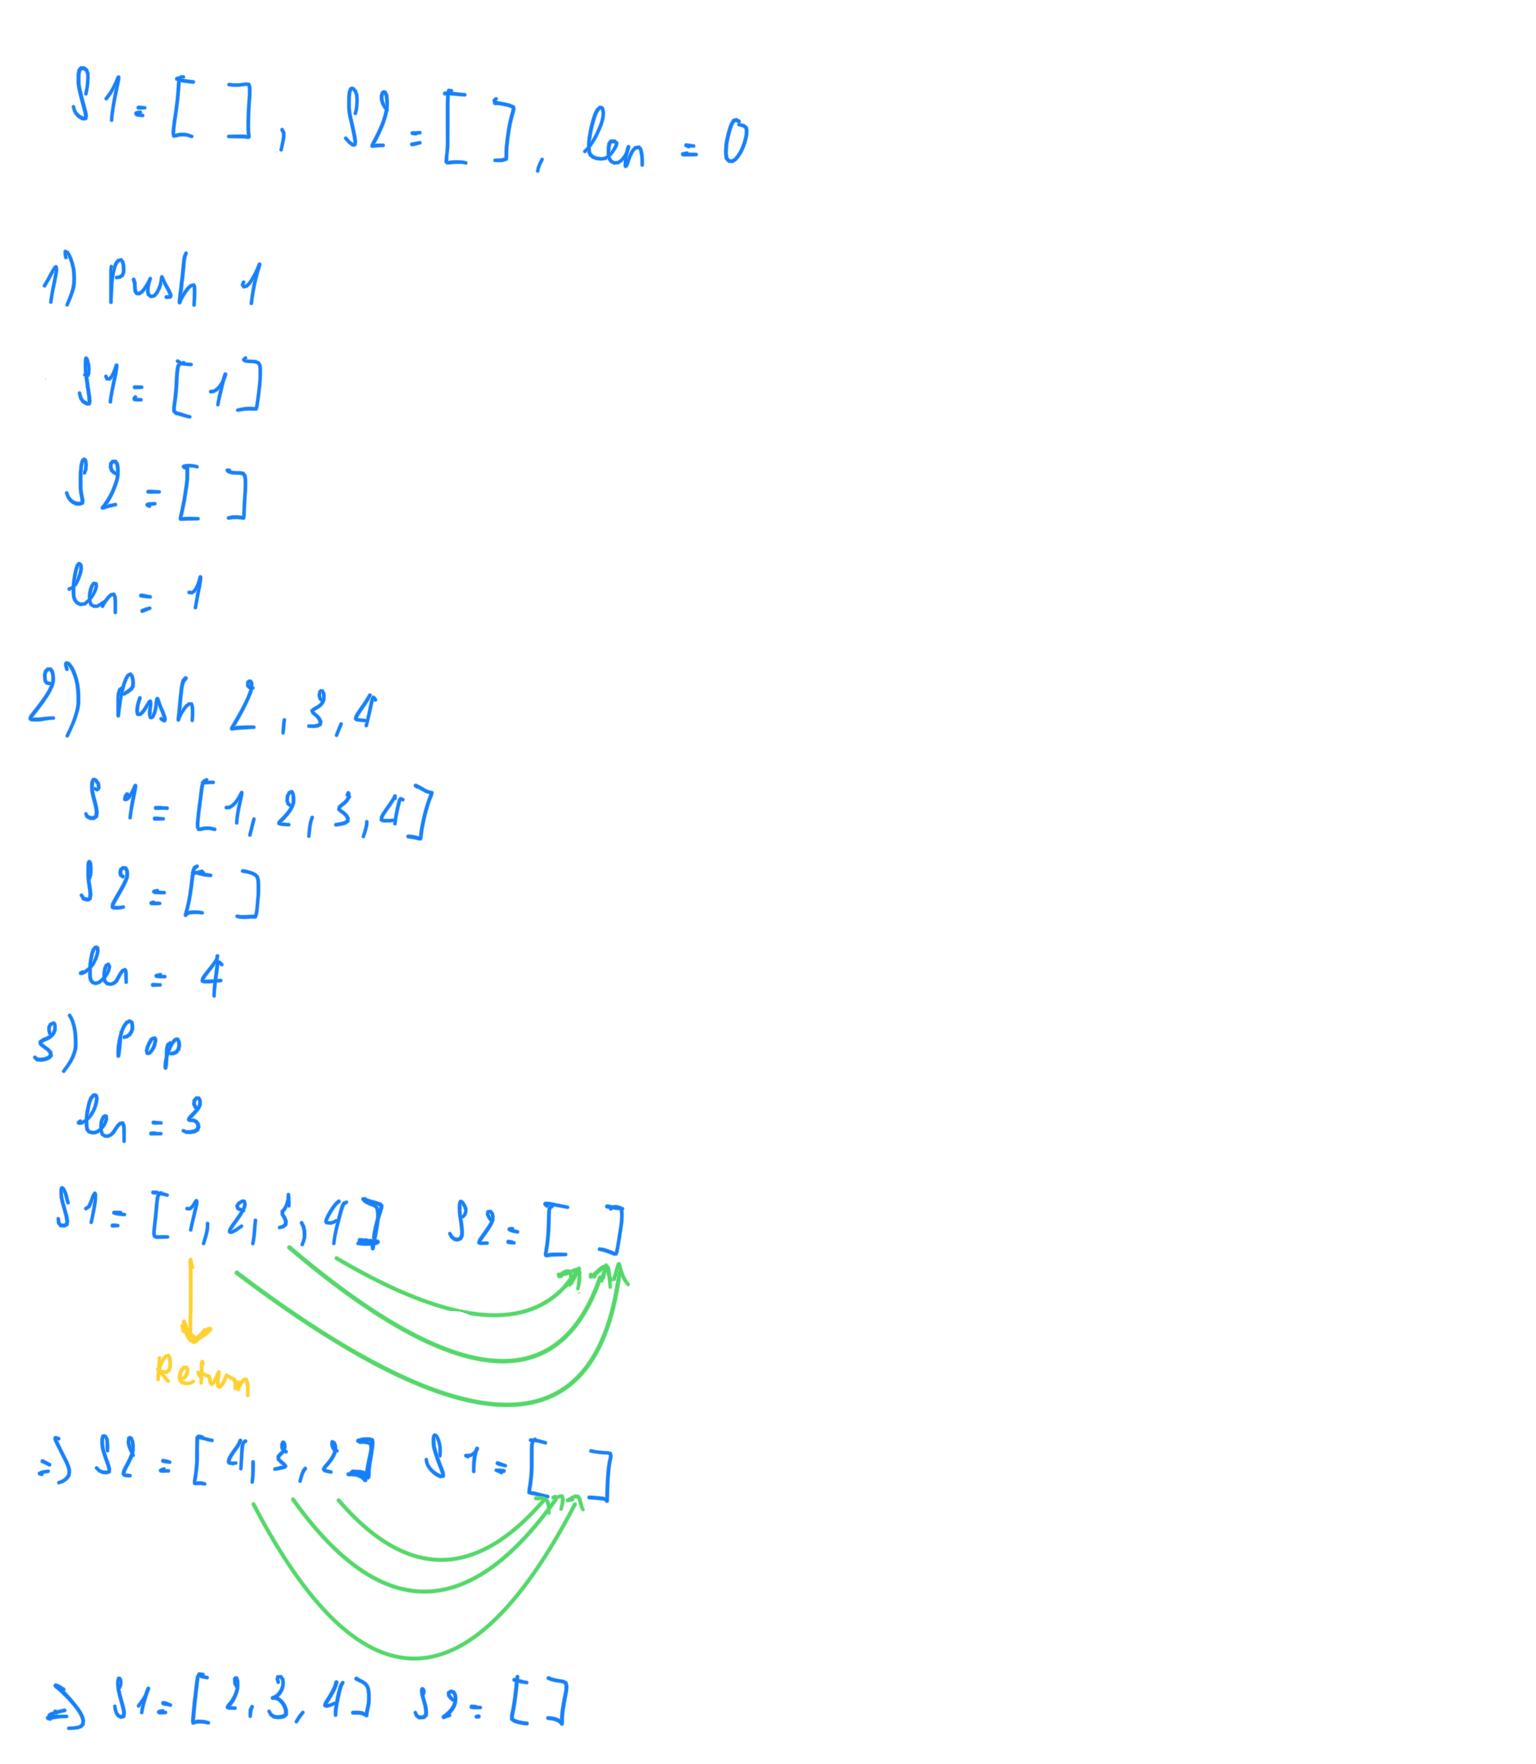 S1 = [ ], S2 = [ ], len = 0
1) Push 1
S1 = [1]
S2 = [ ]
len = 1
2) Push 2, 3, 4
S1 = [1, 2, 3, 4]
S2 = [ ]
len = 4
3) Pop
len = 3
S1 = [1, 2, 3, 4] S2 = [ ]
Return
=> S2 = [4, 3, 2] S1 = [ ]
=> S1 = [2, 3, 4] S2 = [ ]